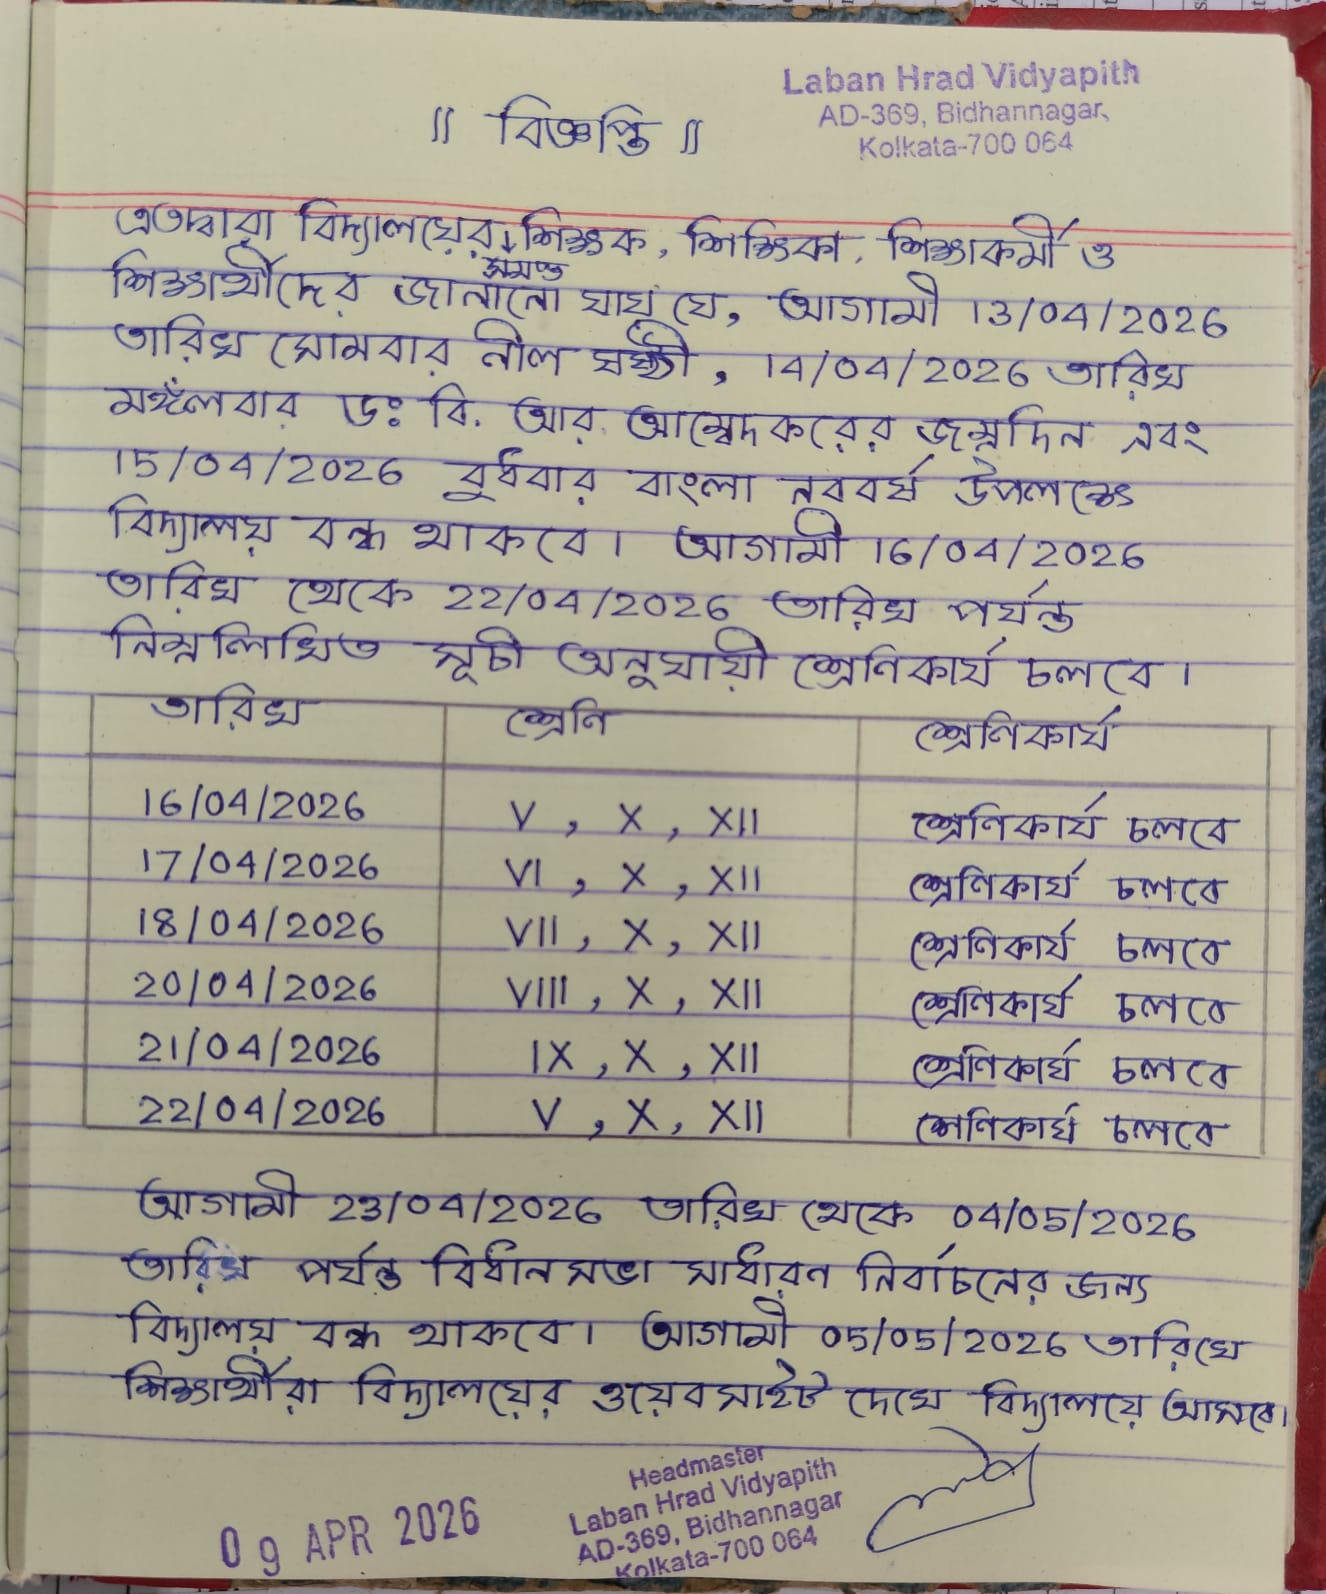 Laban Hrad Vidyapith
AD-369, Bidhannagar,
Kolkata-700 064
॥ বিজ্ঞপ্তি ॥
এতদ্বারা বিদ্যালয়ের সমস্ত শিক্ষক, শিক্ষিকা, শিক্ষাকর্মী ও
শিক্ষার্থীদের জানানো যায় যে, আগামী 13/04/2026
তারিখ সোমবার নীল ষষ্ঠী, 14/04/2026 তারিখ
মঙ্গলবার ডঃ বি. আর. আম্বেদকরের জন্মদিন এবং
15/04/2026 বুধবার বাংলা নববর্ষ উপলক্ষে
বিদ্যালয় বন্ধ থাকবে। আগামী 16/04/2026
তারিখ থেকে 22/04/2026 তারিখ পর্যন্ত
নিম্নলিখিত সূচী অনুযায়ী শ্রেণিকার্য চলবে।
তারিখ শ্রেণি শ্রেণিকার্য
16/04/2026 V, X, XII শ্রেণিকার্য চলবে
17/04/2026 VI, X, XII শ্রেণিকার্য চলবে
18/04/2026 VII, X, XII শ্রেণিকার্য চলবে
20/04/2026 VIII, X, XII শ্রেণিকার্য চলবে
21/04/2026 IX, X, XII শ্রেণিকার্য চলবে
22/04/2026 V, X, XII শ্রেণিকার্য চলবে
আগামী 23/04/2026 তারিখ থেকে 04/05/2026
তারিখ পর্যন্ত বিধানসভা সাধারণ নির্বাচনের জন্য
বিদ্যালয় বন্ধ থাকবে। আগামী 05/05/2026 তারিখে
শিক্ষার্থীরা বিদ্যালয়ের ওয়েবসাইট দেখে বিদ্যালয়ে আসবে।
09 APR 2026
Headmaster
Laban Hrad Vidyapith
AD-369, Bidhannagar
Kolkata-700 064